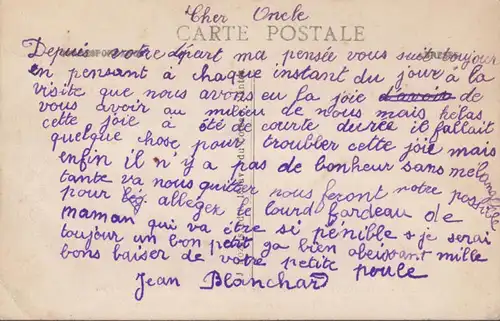 Cher Oncle
CARTE POSTALE
Depuis votre départ ma pensée vous suit toujour
en pensant à chaque instant du jour à la
visite que nous avons eu la joie d'avoir de
vous avoir au milieu de nous mais hélas
cette joie à été de courte durée il fallait
quelque chose pour troubler cette joie mais
enfin il n'y a pas de bonheur sans mélange
tante va nous quitter nous feront notre possible
pour alléger le lourd fardeau de
maman qui va être si pénible & je serai
toujour un bon petit ga bien obeissant mille
bons baiser de votre petite poule
Jean Blanchard